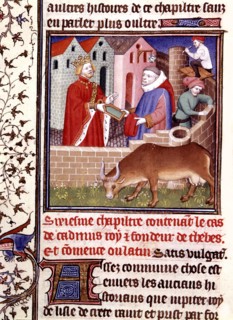 autres histoires de ce chapitre sanz
en parler plus oultre.
Sixiesme chapitre contenant le cas
de cadmus roy et fondeur de thebes,
et comence ou latin Satis vulgat.
Assez commune chose est
envers les anciens hi
storians que iupiter roy
de lisle de crete tant et puist par for